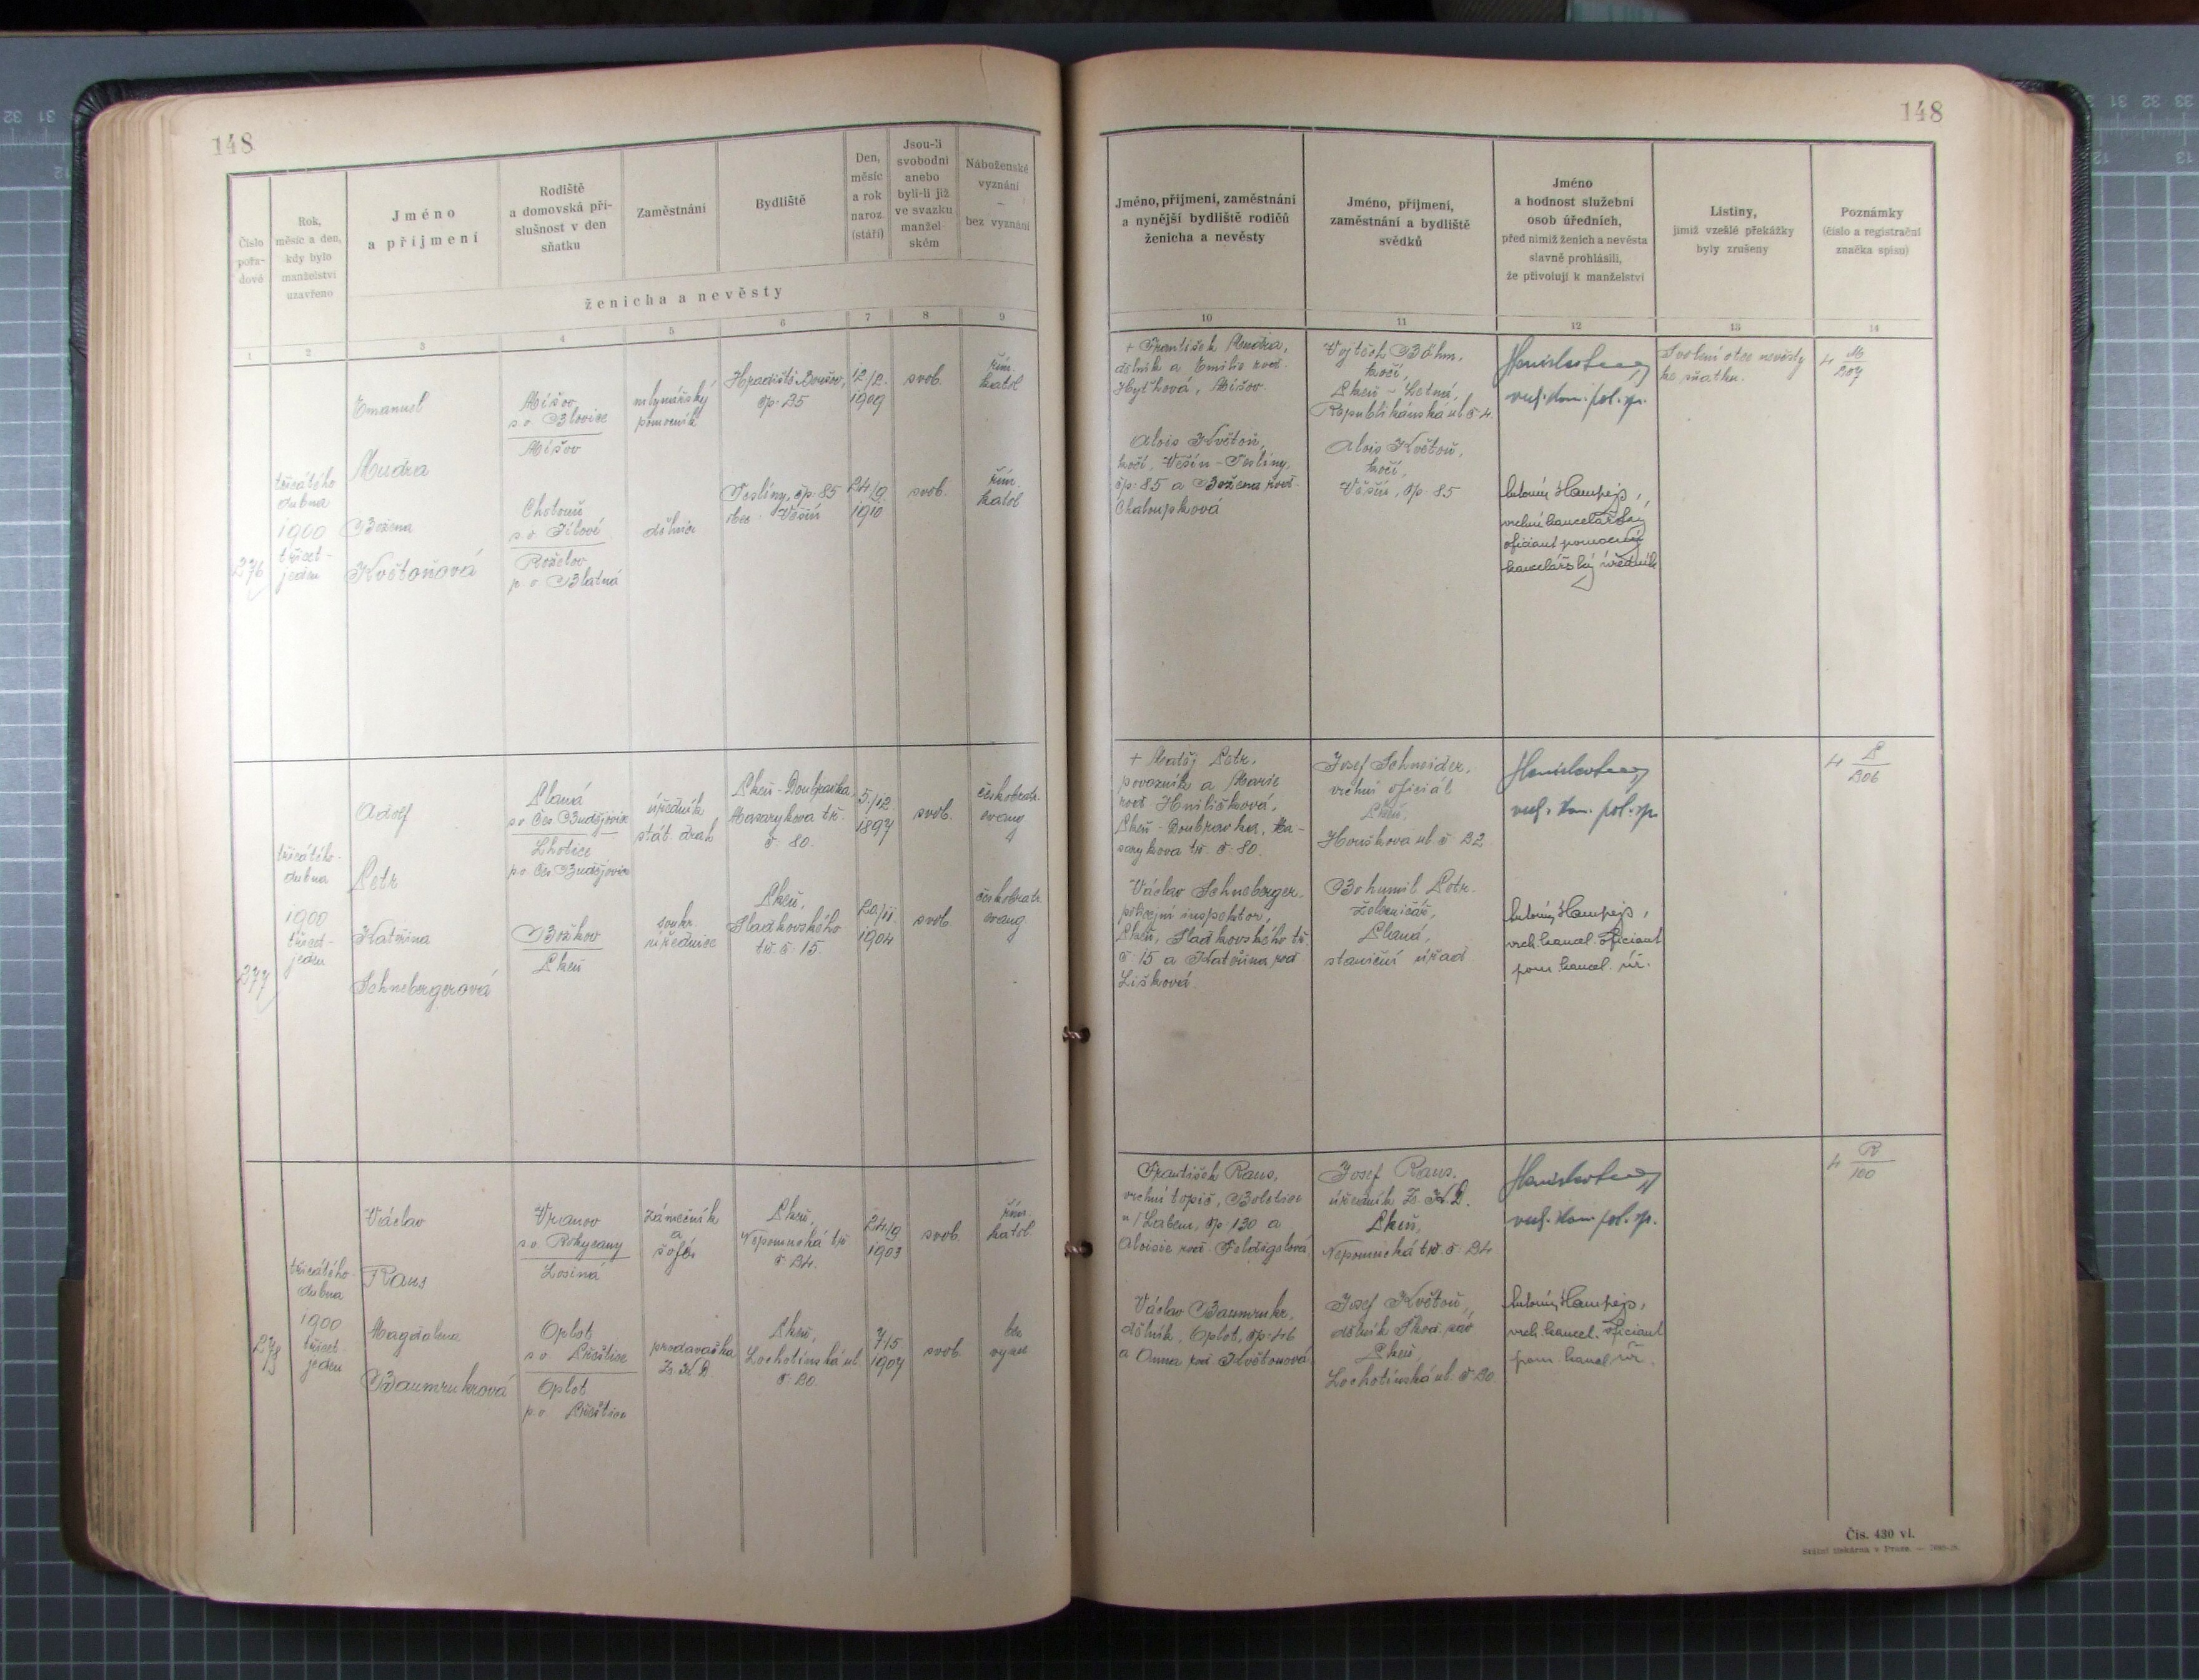 148
Číslo pořa-dové
Rok, měsíc a den, kdy bylo manželství uzavřeno
Jméno a příjmení
Rodiště a domovská pří-slušnost v den sňatku
Zaměstnání
Bydliště
Den, měsíc a rok naroz. (stáří)
Jsou-li svobodni anebo byli-li již ve svazku manžel-ském
Náboženské vyznání – bez vyznání
ženicha a nevěsty
1 2 3 4 5 6 7 8 9
276
třicátého
dubna
1900
třicet-
jeden
Emanuel
Mudra
Božena
Květoňová
Míšov
s. o. Blovice
Míšov
Chotouň
s. o. Jílové
Roželov
p. o. Blatná
mlynářský
pomocník
dělnice
čp. 25
Teslíny, čp. 85
obec Věšín
12/2.
1909
24/9.
1910
svob.
svob.
řím.
katol
řím.
katol
277
třicátého
dubna
1900
třicet-
jeden
Adolf
Petr
Kateřina
Schnebergerová
Planá
s. o. Čes. Budějovice
Lhotice
p. o. Čes. Budějovice
Božkov
Plzeň
úředník
stát. drah
soukr.
úřednice
Plzeň-Doubravka,
Masarykova tř.
č. 80.
Plzeň,
Sladkovského
tř. č. 15.
5./12.
1897
20/11.
1904
svob.
svob.
českobratr.
evang
českobratr.
evang
278
třicátého
dubna
1900
třicet-
jeden
Václav
Raus
Magdalena
Baumrukrová
Vranov
s. o. Rokycany
Losiná
Oplot
s. o. Přeštice
Oplot
p. o. Přeštice
zámečník
a
šofér
prodavačka
Plzeň,
Nepomucká tř.
č. 24.
Plzeň,
Lochotínská ul.
č. 20.
24/9.
1903
7/5.
1907
svob.
svob.
řím.
katol.
bez
vyzn
148
Jméno, příjmení, zaměstnání
a nynější bydliště rodičů
ženicha a nevěsty
Jméno, příjmení,
zaměstnání a bydliště
svědků
Jméno
a hodnost služební
osob úředních,
před nimiž ženich a nevěsta
slavně prohlásili,
že přivolují k manželství
Listiny,
jimiž vzešlé překážky
byly zrušeny
Poznámky
(číslo a registrační
značka spisu)
10 11 12 13 14
+ František Mudra,
dělník a Emilie roz.
Míšov.
Alois Květoň,
kočí, Věšín-Teslíny,
čp. 85 a Božena roz.
Chaloupková
Vojtěch Böhm,
kočí,
Plzeň-Letná,
Republikánská ul. č. 4.
Alois Květoň,
kočí,
Věšín, čp. 85
vrch. kom. pol. sp.
Antonín Hampejs,
vrchní kancelářský
oficiant pomocný
kancelářský úředník
Svolení otce nevěsty
ke sňatku.
4 M/207
+ Matěj Petr,
povozník a Marie
roz. Hniličková,
Plzeň-Doubravka, Ma-
sarykova tř. č. 80.
Václav Schneberger,
policejní inspektor,
Plzeň, Sladkovského tř.
č. 15 a Kateřina roz.
Lišková.
Josef Schneider,
vrchní oficiál
Plzeň,
Houškova ul. č. 22
Bohumil Petr.
železničář,
Planá,
staniční úřad
vrch. kom. pol. sp.
Antonín Hampejs,
vrch. kancel. oficiant
pom. kancel. úř.
4 P/206
František Raus,
vrchní topič, Boletice
n/Labem, čp. 130 a
Aloisie roz. Feldigelová
Václav Baumrukr,
dělník, Oplot, čp. 46
a Anna roz. Květonová
Josef Raus,
úředník
Plzeň,
Nepomucká tř. č. 24
Josef Květoň,
dělník Škod. záv.
Plzeň
Lochotínská ul. č. 20.
vrch. kom. pol. sp.
Antonín Hampejs,
vrch. kancel. oficiant
pom. kancel úř.
4 R/100
Čís. 430 vl.
Státní tiskárna v Praze.